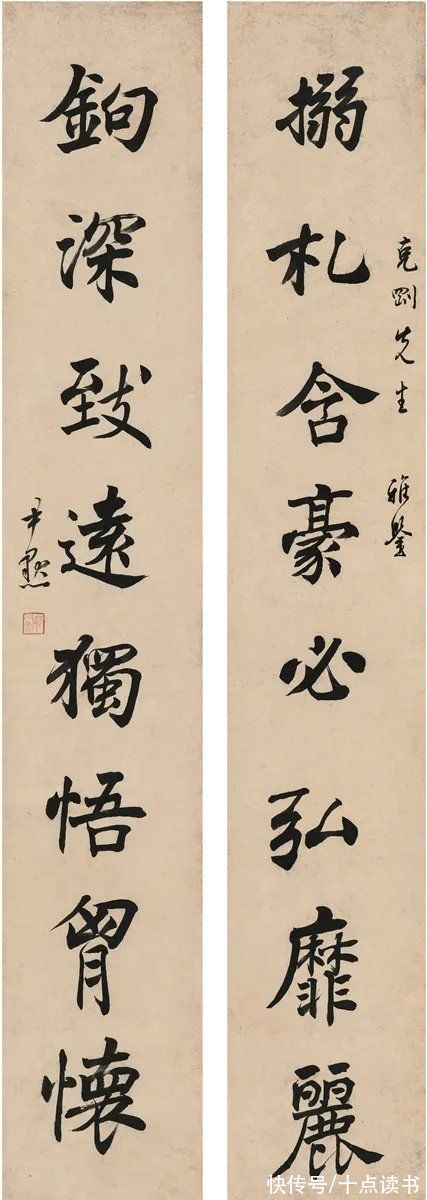 克剛先生 雅鑒
搦札含豪必弘靡麗
鉤深致遠獨悟胷懷
尹默
快传号/十点读书